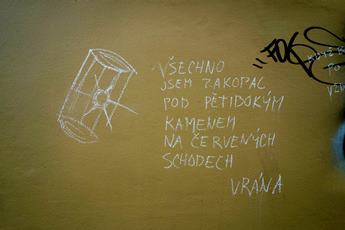 VŠECHNO
JSEM ZAKOPAL
POD PĚTIDOKÝM
KAMENEM
NA ČERVENÝCH
SCHODECH
VRÁNA